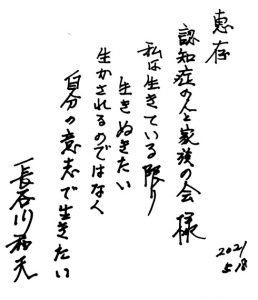 恵存
認知症の人と家族の会様
私は生きている限り
生きぬきたい
生かされるのではなく
自分の意志で生きたい
長谷川和夫
2021
5.18